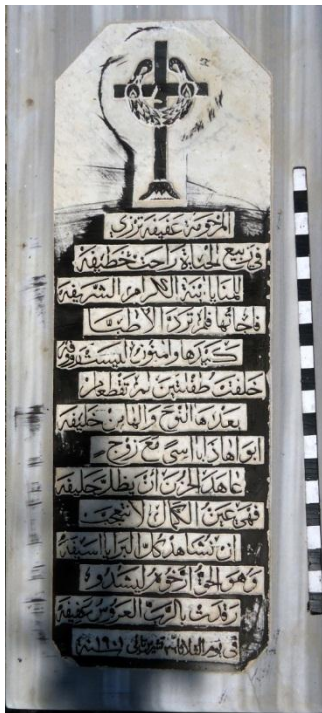 المرحومة عفيفة ترزي
في ربيع الحياة راحت خطيفة
للمنايا ابنة الاكرم الشريفه
فاجأتها فلم ترد الأطبا
كيدها وامنون ليست
خلفت طفلتين لم تفطما
بعدها النوح والهاني خليفه
ابواها ذابا اسى مع زوج
عاهد الحزن ان يظل حليفه
فهي عين الكمال لا تتعجب
ان تشاهد كل البرايا اسيفة
وهو الحق ارخوه ليشدو
رقدت بالرب العروس عفيفه
في يوم الثلاثاء تشرين ثاني سنة ١٩٠١